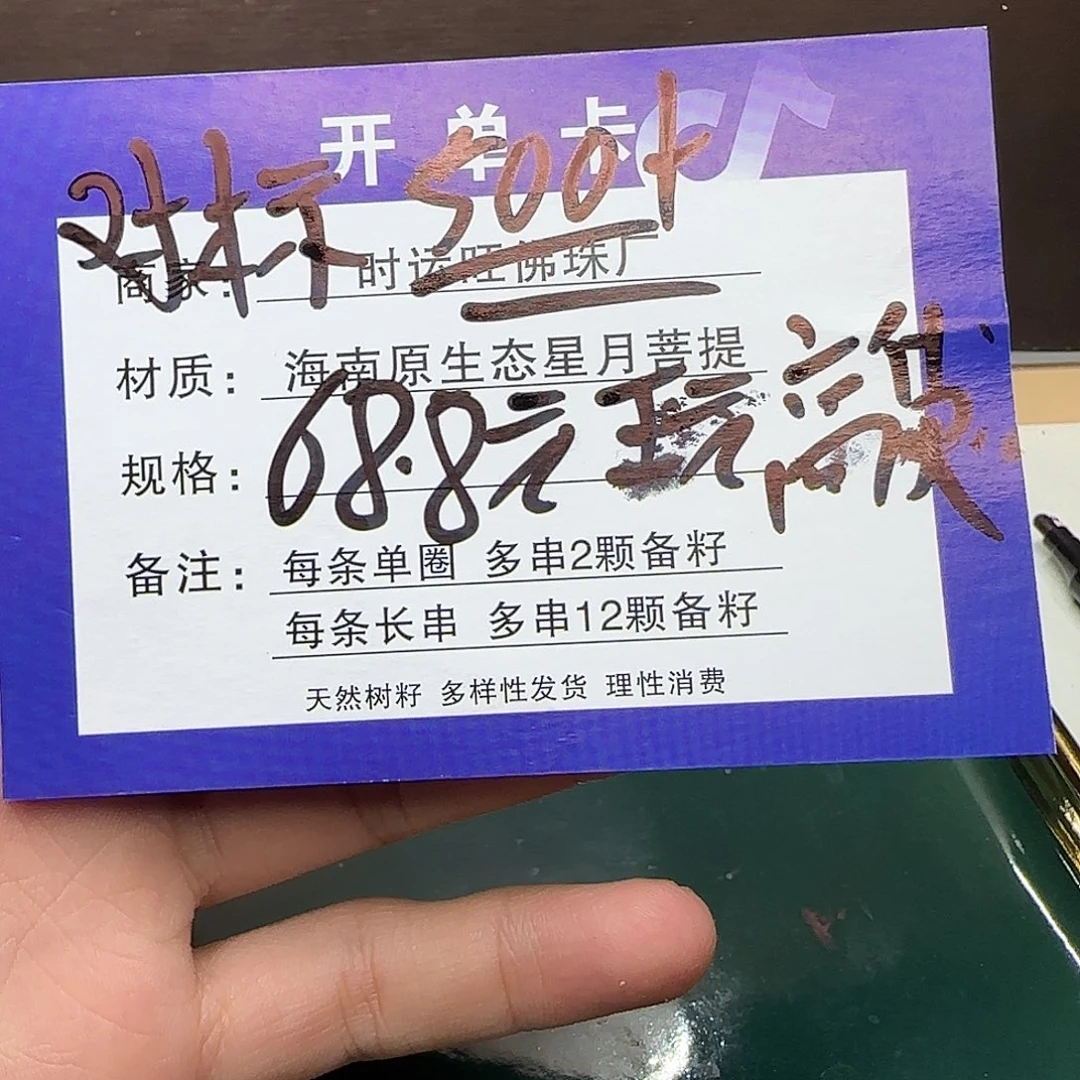 开单卡
对标500+
商家：时运旺佛珠厂
材质：海南原生态星月菩提
68.8元玩高货
规格：
备注：每条单圈 多串2颗备籽
每条长串 多串12颗备籽
天然树籽 多样性发货 理性消费